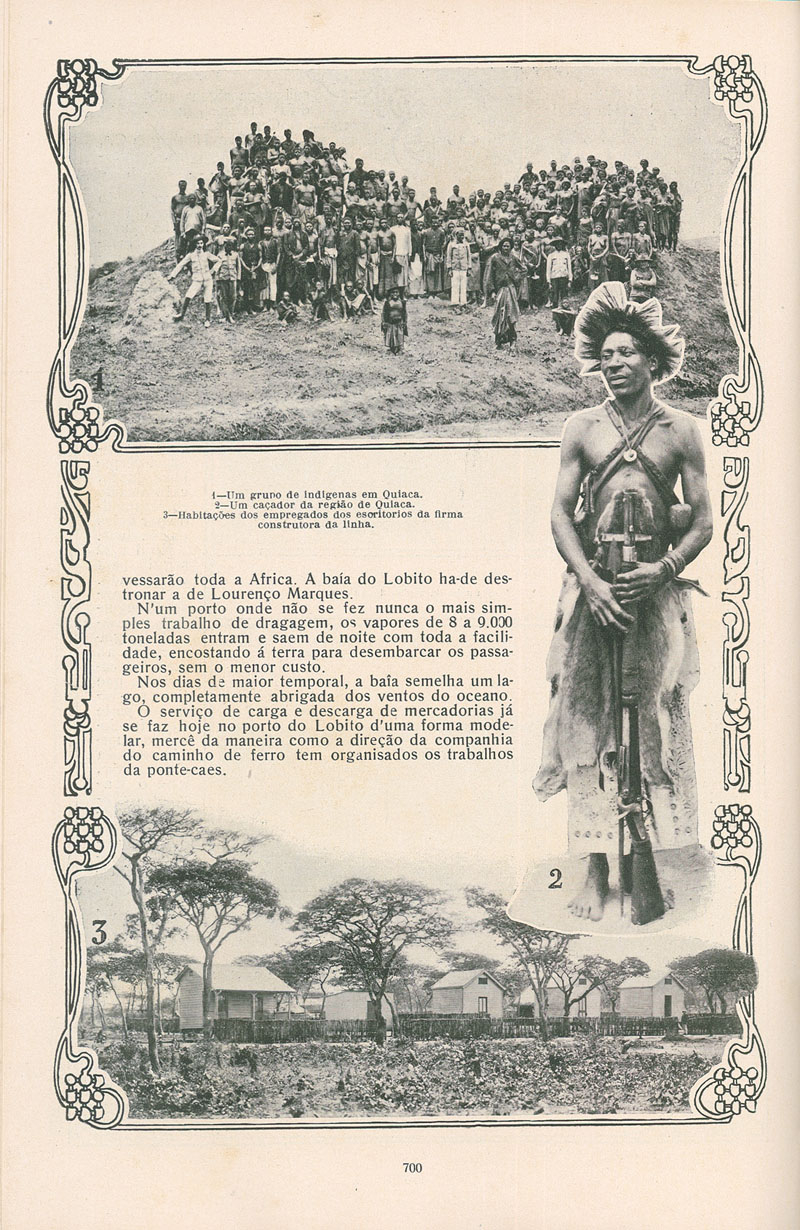 1
1—Um grupo de indigenas em Quiaca.
2—Um caçador da região de Quiaca.
3—Habitações dos empregados dos escritorios da firma
construtora da linha.
vessarão toda a Africa. A baía do Lobito ha-de des-
tronar a de Lourenço Marques.
N'um porto onde não se fez nunca o mais sim-
ples trabalho de dragagem, os vapores de 8 a 9.000
toneladas entram e saem de noite com toda a facili-
dade, encostando á terra para desembarcar os passa-
geiros, sem o menor custo.
Nos dias de maior temporal, a baía semelha um la-
go, completamente abrigada dos ventos do oceano.
O serviço de carga e descarga de mercadorias já
se faz hoje no porto do Lobito d'uma forma mode-
lar, mercê da maneira como a direção da companhia
do caminho de ferro tem organisados os trabalhos
da ponte-caes.
2
3
700